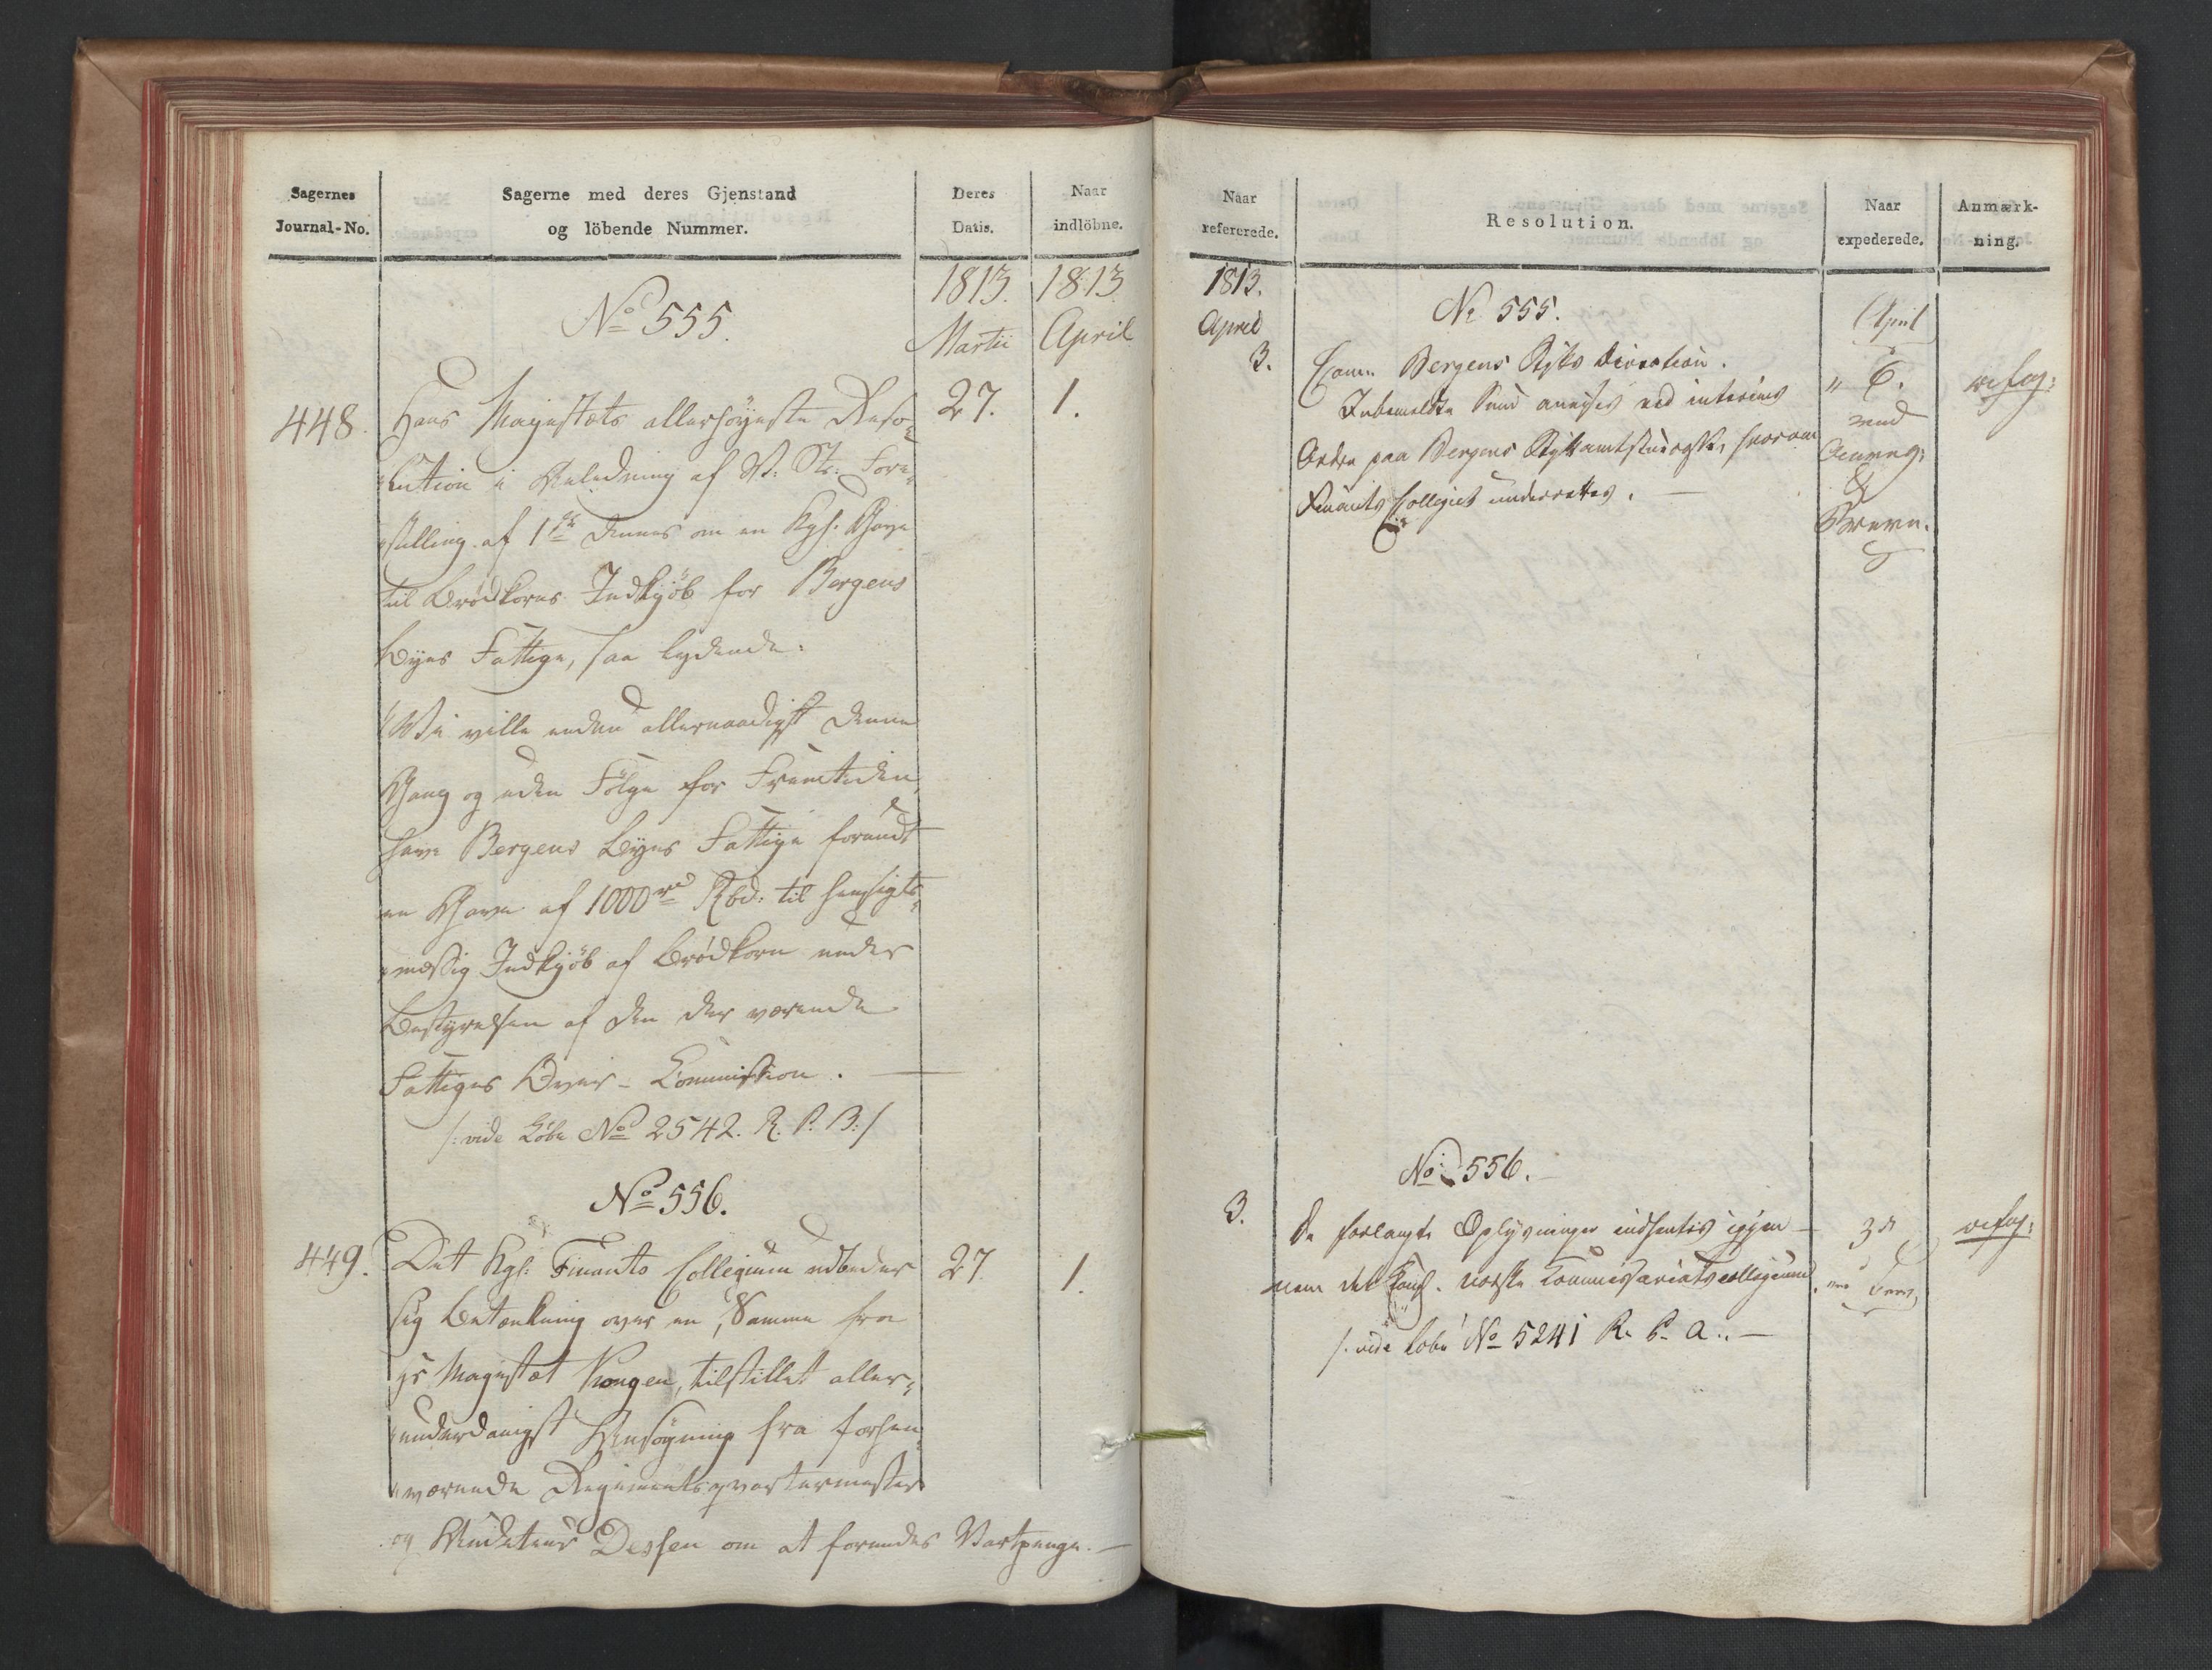 Sagernes
Journal-No.
Sagerne med deres Gjenstand
og löbende Nummer.
Deres
Datis.
Naar
indlöbne.
1813. 1813
No 555.
Martii April
448. Hans Majestæts allerhøyeste Reso- 27. 1.
lution i Anledning af R: St: Fore-
stilling af 1ste dennes om en Kgl. Gave
til Brødkorns Indkjöb for Bergens
Byes Fattige, saa lydende:
Wi ville endnu allernaadigst denne
Gang og uden Fölge for Fremtiden,
have Bergens Byes Fattige forundt
en Gave af 1000 Rbd: til hensigts-
mæssig Indkjöb af Brödkorn under
Bestyrelsen af den der værende
Fattiges Over-Commission.
/: vide Löbe No 2542. R. P. B:/
No 556.
449. Det Kgl: Finants Collegium udbeder 27. 1.
sig Betænkning over en, samme fra
Hs Majestæt Kongen, tilstillet aller-
underdanigst Ansögning fra forhen-
værende Regimentsqvartermester
og Auditeur Dessen om at forundes Vartpenge.
Naar
refererede.
Resolution.
Naar
expederede.
Anmærk-
ning.
1813.
April
No 555.
April
3. Comm. Bergens Stifts Direction. " 6.
Indbemeldte Sum anvises ved interims
Ordre paa Bergens Stiftamtstue, hvorom
Finants Collegiet underrettes.
Breve.
No 556.
3. De forlangte Oplysninger indhentes igjen-
nem det Norske Commissariatscollegium
/: vide Lobe No 5241 R. P. A.